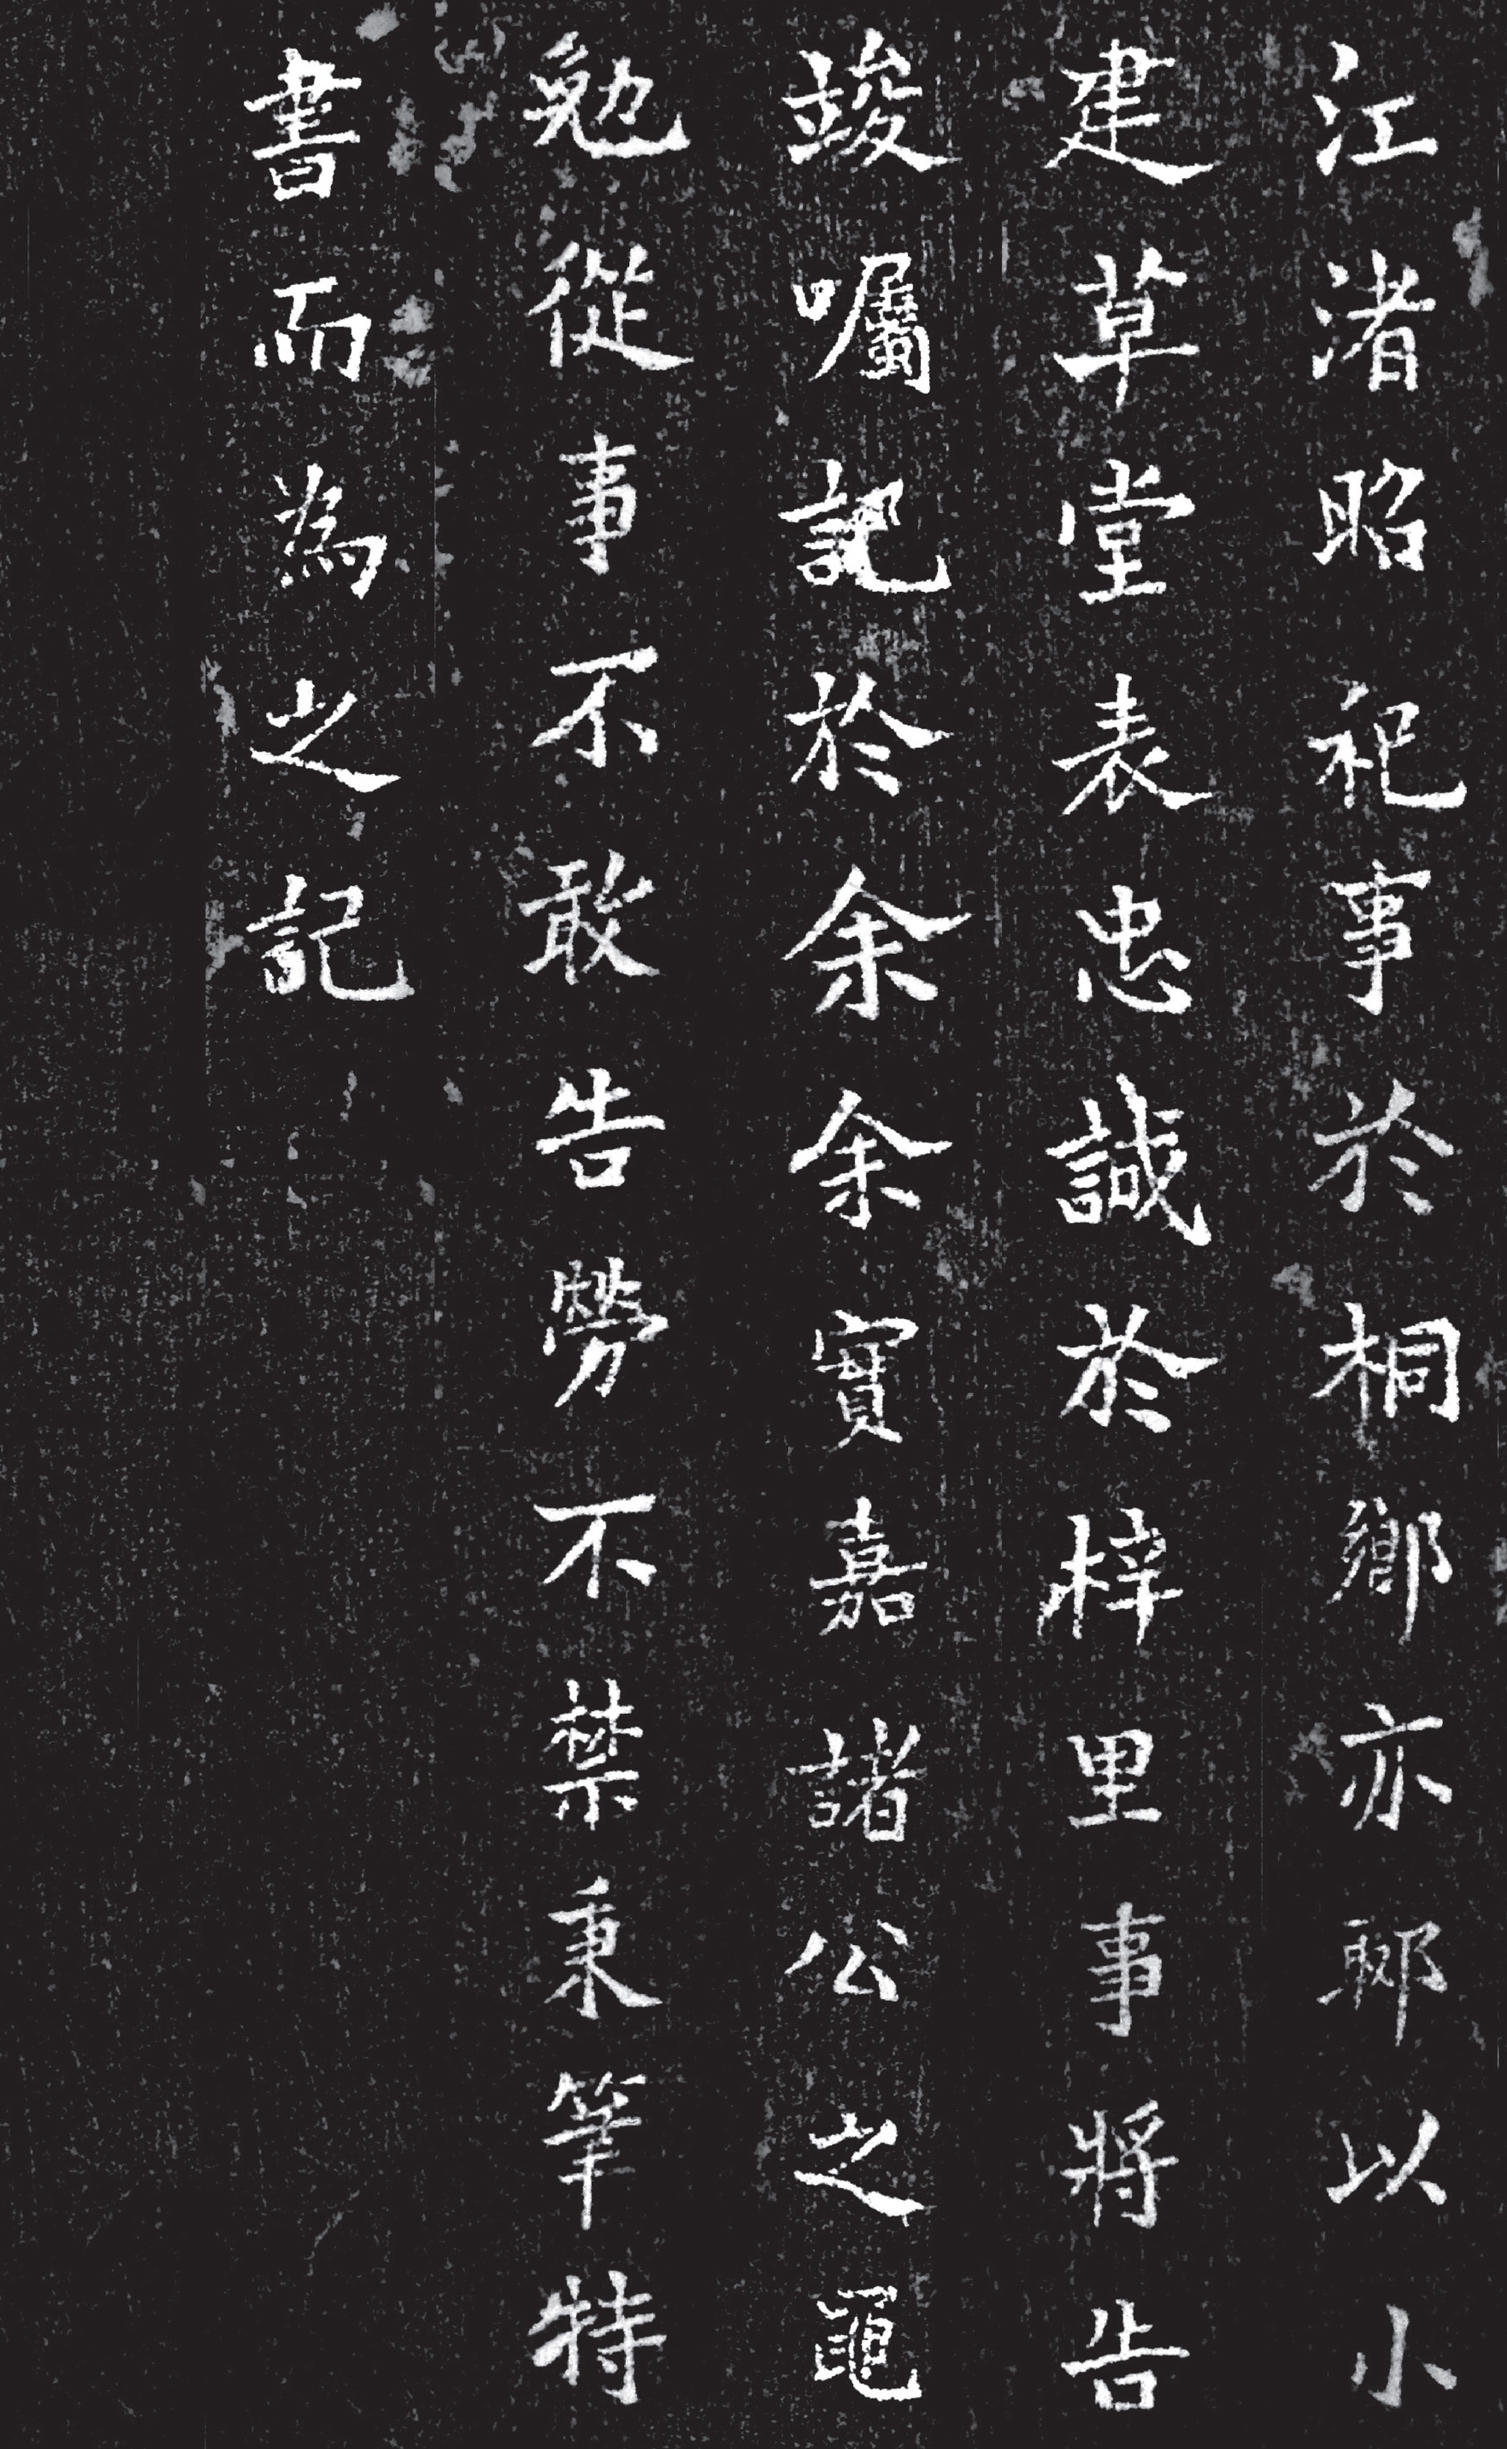 江渚昭祀事於桐鄉亦郰以小
建草堂表忠誠於梓里事將告
竣囑記於余余實嘉諸公之黽
勉從事不敢告勞不禁秉筆特
書而為之記